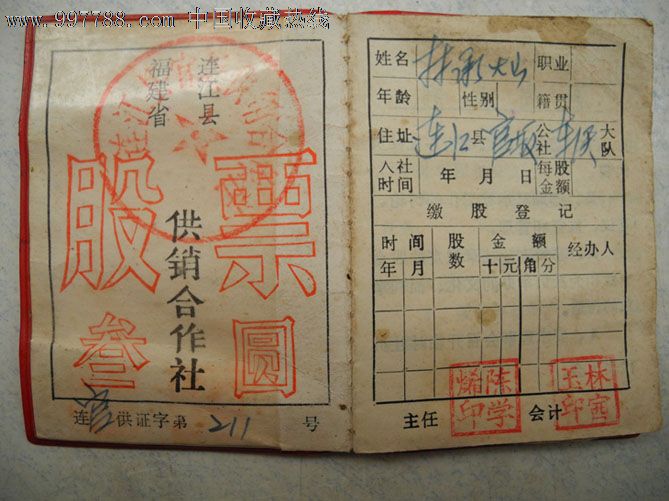 www.997788.com 中国收藏热线
福建省 连江县
供销合作社
股票
叁圆
连官供证字第211号
姓名 林 火山 职业
年龄 性别 籍贯
住址 连江县官坂公社 大队
入社时间 年月日 每股金额
缴股登记
时间 股数 金额 经办人
年 月 十元角分
主任 陈学 印 会计 林 玉印